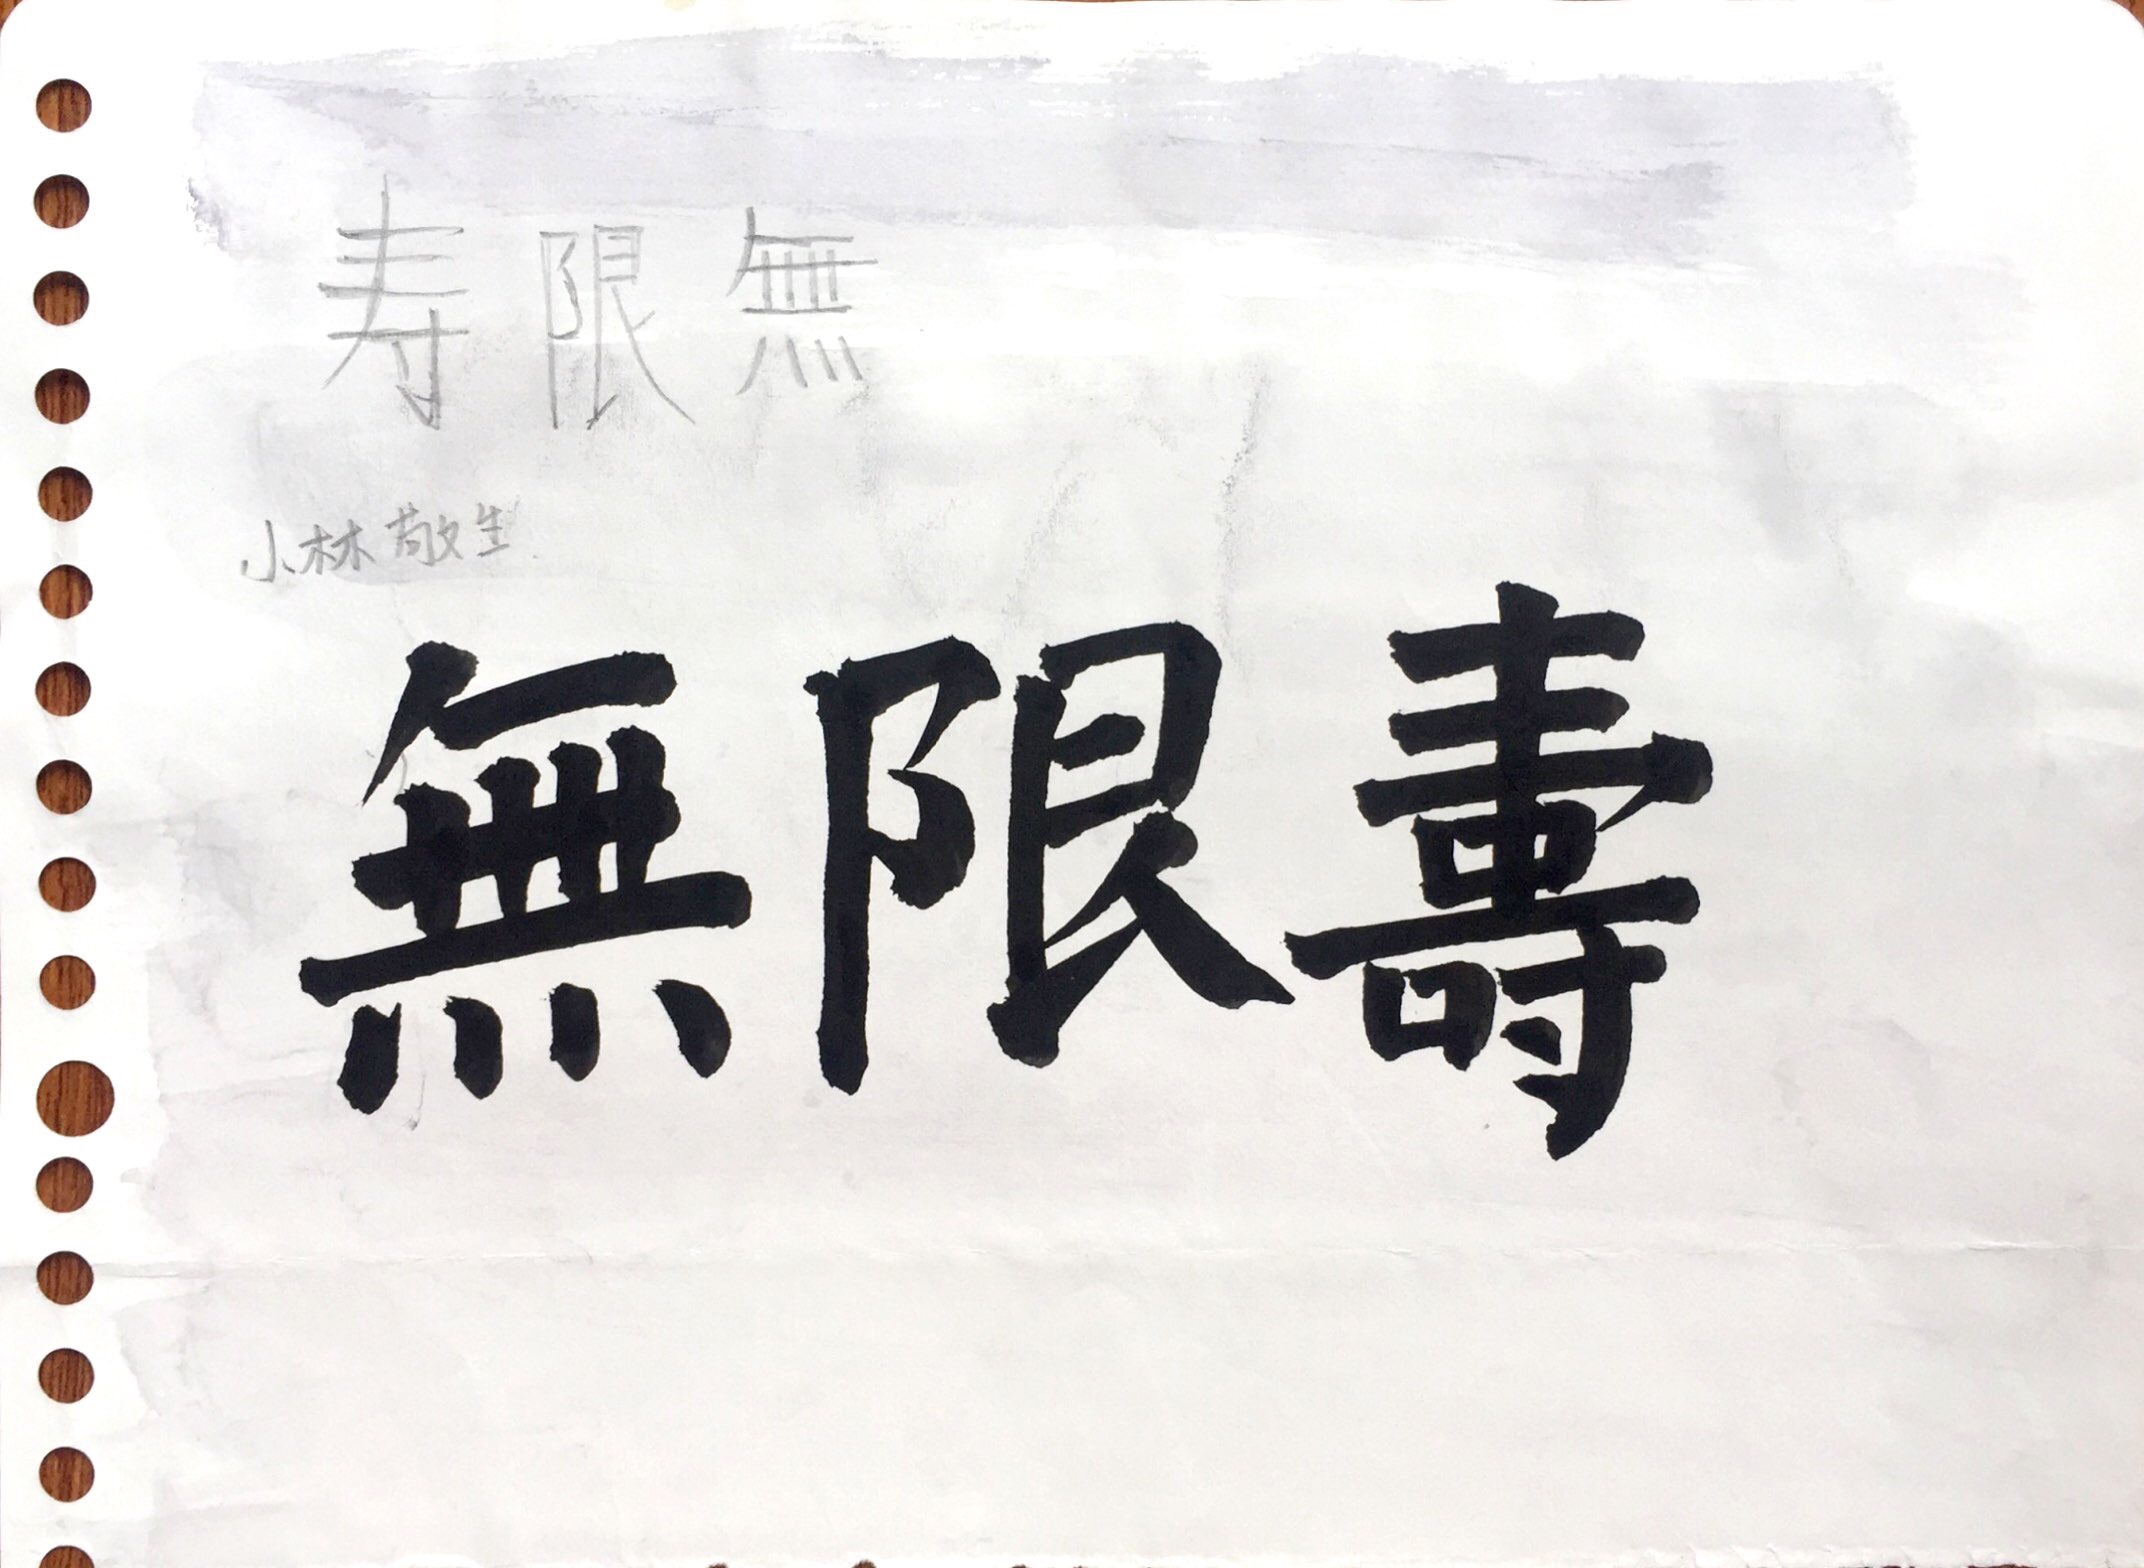 寿限無
小林敬生
無限壽